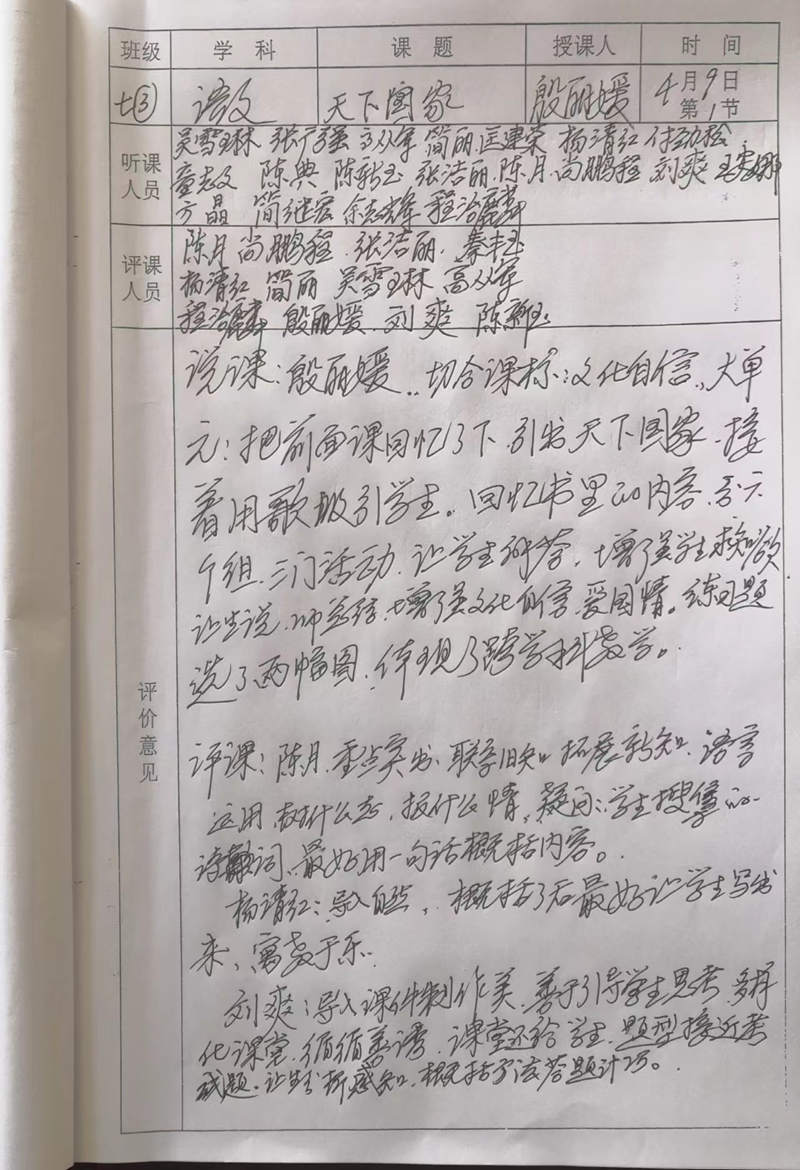 班级 学科 课题 授课人 时间
七③ 语文 天下国家 殷丽媛 4月9日
第1节
听课人员
吴雪琳 张广强 高从军 简丽 匡建荣 杨清红 付劲松
童志文 陈典 陈新玉 张洁丽 陈月 尚鹏程 刘爽
方晶 简继宏 余志雄 程治麟
评课人员
陈月 尚鹏程 张洁丽 秦玉
杨清红 简丽 吴雪琳 高从军
程治麟 殷丽媛 刘爽 陈新玉
评价意见
说课：殷丽媛 切合课标：文化自信、大单
元：把前面课回忆了下，引出天下国家，接
着用歌吸引学生。回忆书里的内容，分六
个组，三门活动，让学生研答，增强学生求知欲
让生说，师总结，增强文化自信，爱国情。练习题
选了两幅图，体现了跨学科教学。
评课：陈月，重点突出，联系旧知，拓展新知，语言
运用，树什么志，报什么情，疑问：学生搜集的
诗词，最好用一句话概括内容。
杨清红：导入自然，概括了后最好让学生写出
来，寓教于乐。
刘爽：导入课件制作美，善于引导学生思考，多样
化课堂，循循善诱，课堂还给学生，题型接近考
试题，让生分析感知，概括了该答题计巧。